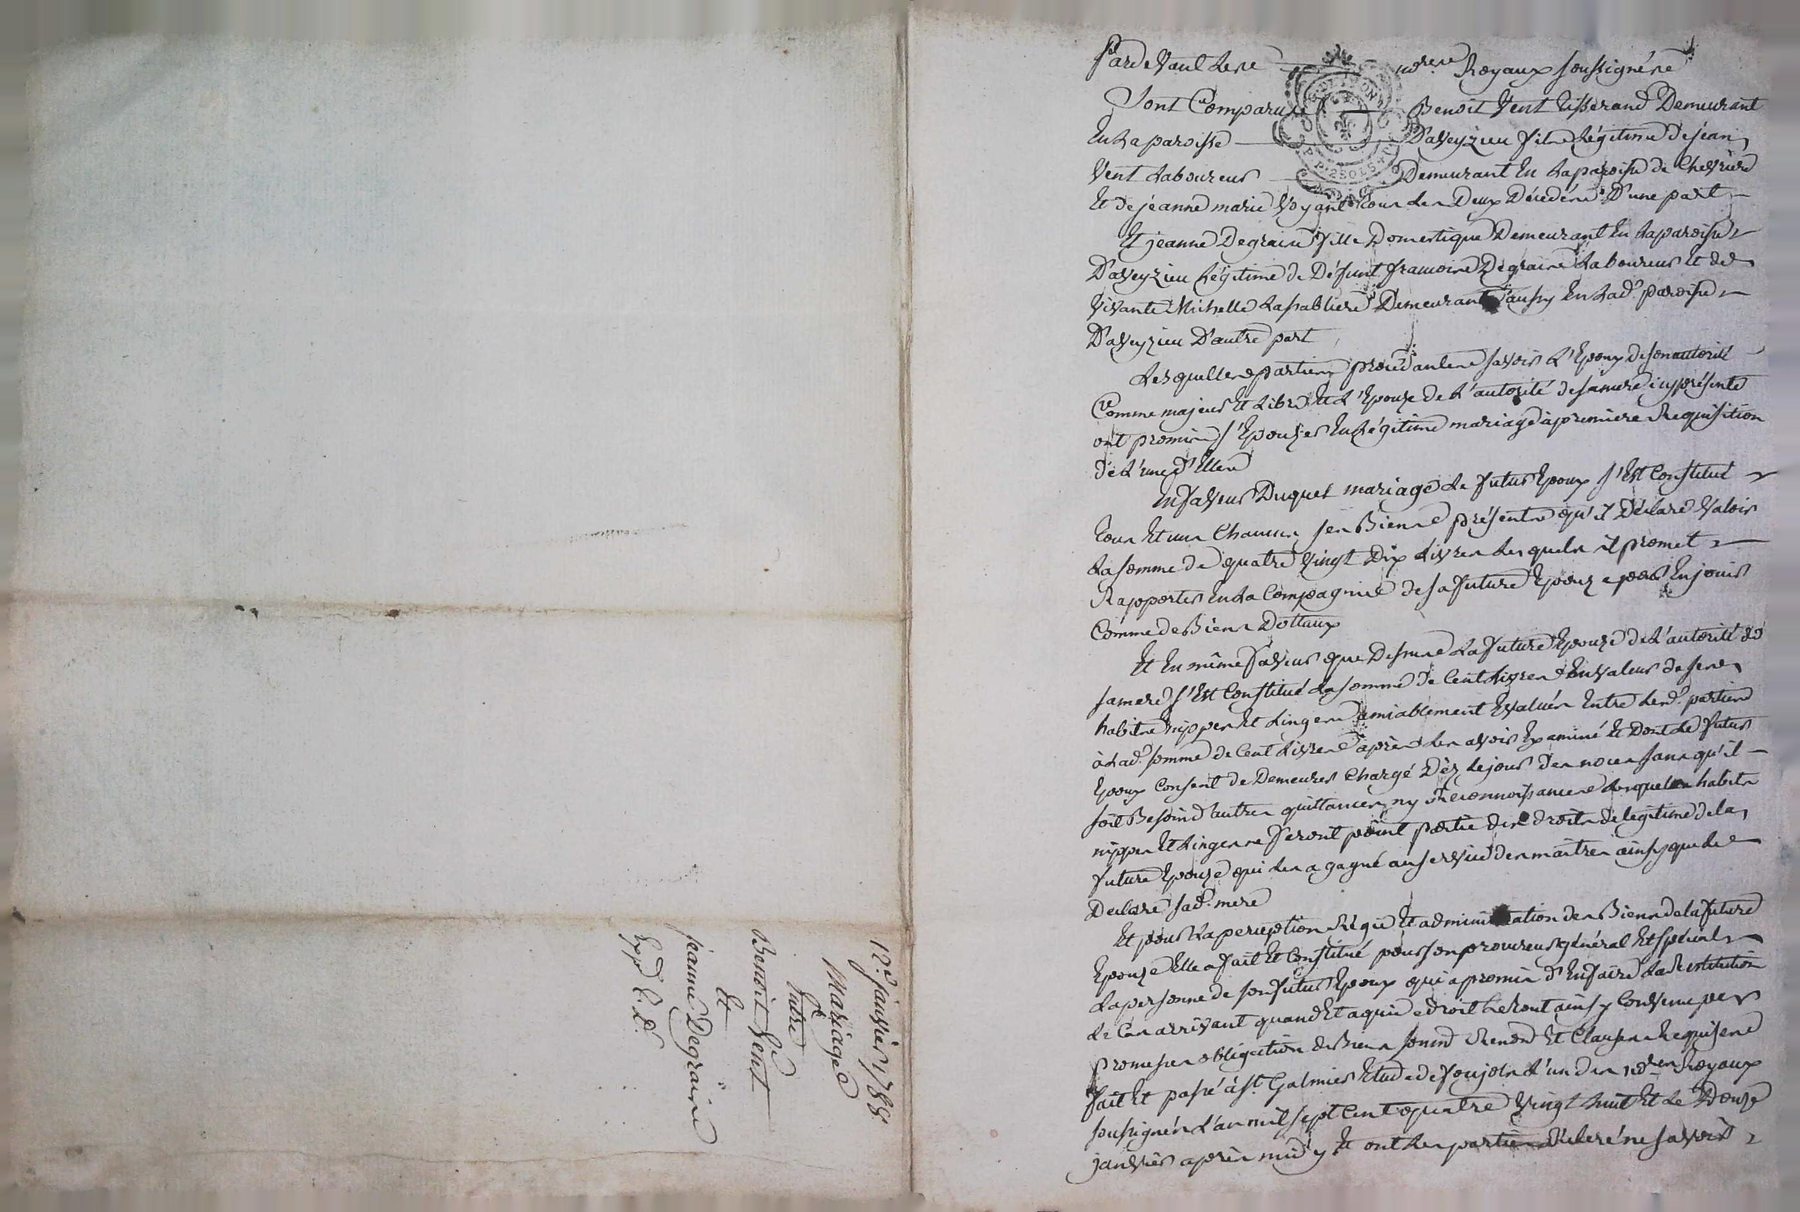 12.e janvier 1788.
Mariage
Entre
Benoit Vent
Et
jeanne Degraine
Exp.d C. d.
Pardevant les no.res Royaux soussignés
Sont Comparus Benoit Vent tisserand Demeurant
En la paroisse D'aveyzieu fils légitime de jean
Vent Laboureur Demeurant En la paroisse de Chevrieres
Et de jeanne marie Voyant tous les Deux Décédés D'une part
Et jeanne Degraine fille Domestique Demeurant En la paroisse
D'aveyzieu Légitime de Défunt francois Degraine Laboureur Et de
Vivante Michelle Lasabliere Demeurant aussy En lad.e paroisse
D'aveyzieu D'autre part
Lesquelles parties procédantes savoir L'Epoux de son autorité
Comme majeur Et Libre Et L'Epouze de L'autorité de sa mere icy présente
ont promis s'Epouzer En légitime mariage à premiere Requisition
de L'une d'Elles
En faveur Duquel mariage le futur Epoux s'Est Constitué
tous Et un Chacun ses Biens présents qu'il Déclare Valoir
La somme de quatre Vingt Dix Livres Lesquels il promet
Rapporter En la Compagnie de sa future Epouze pour En jouir
Comme de Biens Dottaux
Et En même faveur que Dessus La future Epouze de L'autorité de
sa mere s'Est Constitué La somme de Cent Livres En Valeur de ses
habits nippes Et Linges amiablement Evalués Entre Lesd.es parties
à Lad.e somme de Cent Livres après Les avoir Examiné Et Dont Le futur
Epoux Consent de Demeurer Chargé Dèz Le jour des noces sans qu'il
soit Besoin d'autres quittances ny Reconnoissances Lesquels habits
nippes Et Linges ne feront point partie des droits de légitime de la
future Epouze qui Les a gagné au service des maitres ainsy que Le
Déclare sad.e mere
Et pour La perception Régie Et administration des Biens de la future
Epouze Elle a fait Et Constitué pour son procureur général Et spécial
La personne de son futur Epoux qui a promis d'En faire La Restitution
Le Cas arrivant quand Et a qui de droit Le tout ainsy Convenu par
promesses obligation de Biens soumis Renon Et Clauses Requises
fait Et passé à S.t Galmier Etude de Poujols L'un des no.res Royaux
soussignés L'an mil sept Cent quatre Vingt huit Et Le Douze
janvier après midy Et ont Les parties Déclaré ne savoir